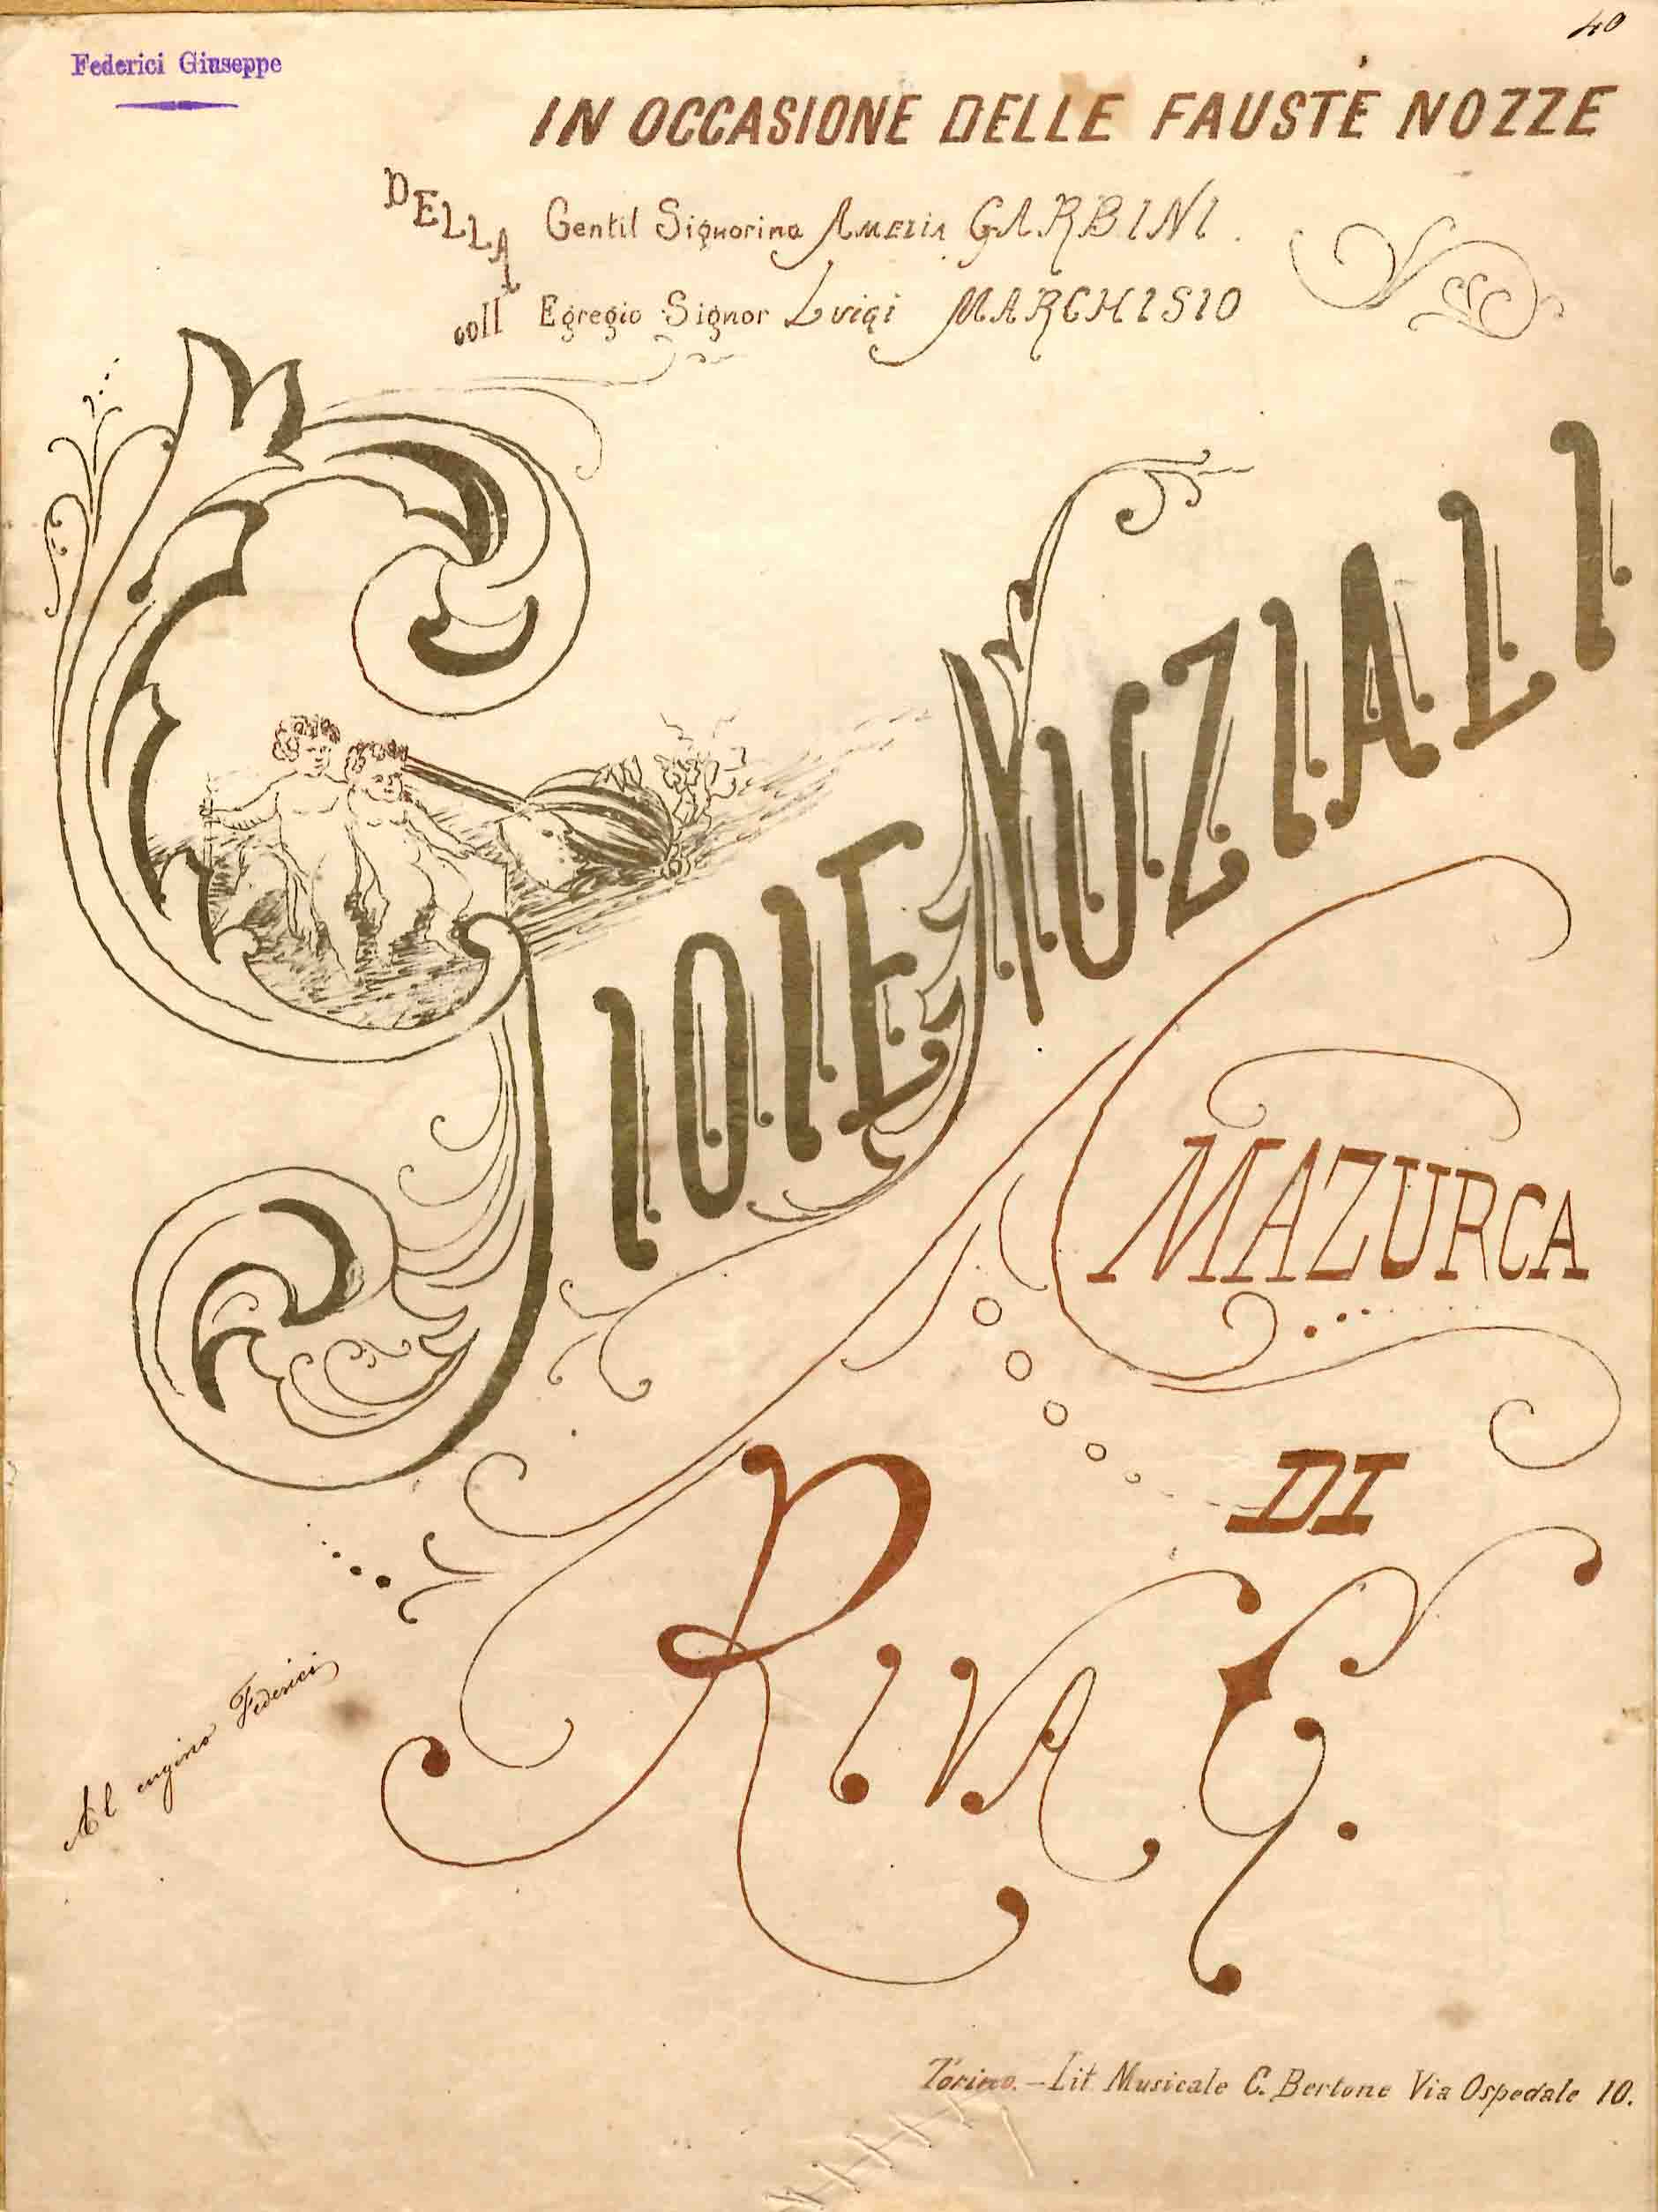 40
Federici Giuseppe
IN OCCASIONE DELLE FAUSTE NOZZE
DELLA Gentil Signorina AMELIA GARBINI.
coll Egregio Signor Luigi MARCHISIO
GIOIE NUZIALI
MAZURCA
DI
RIVA G.
Al cugino Federici
Torino. - Lit Musicale C. Bertone Via Ospedale 10.